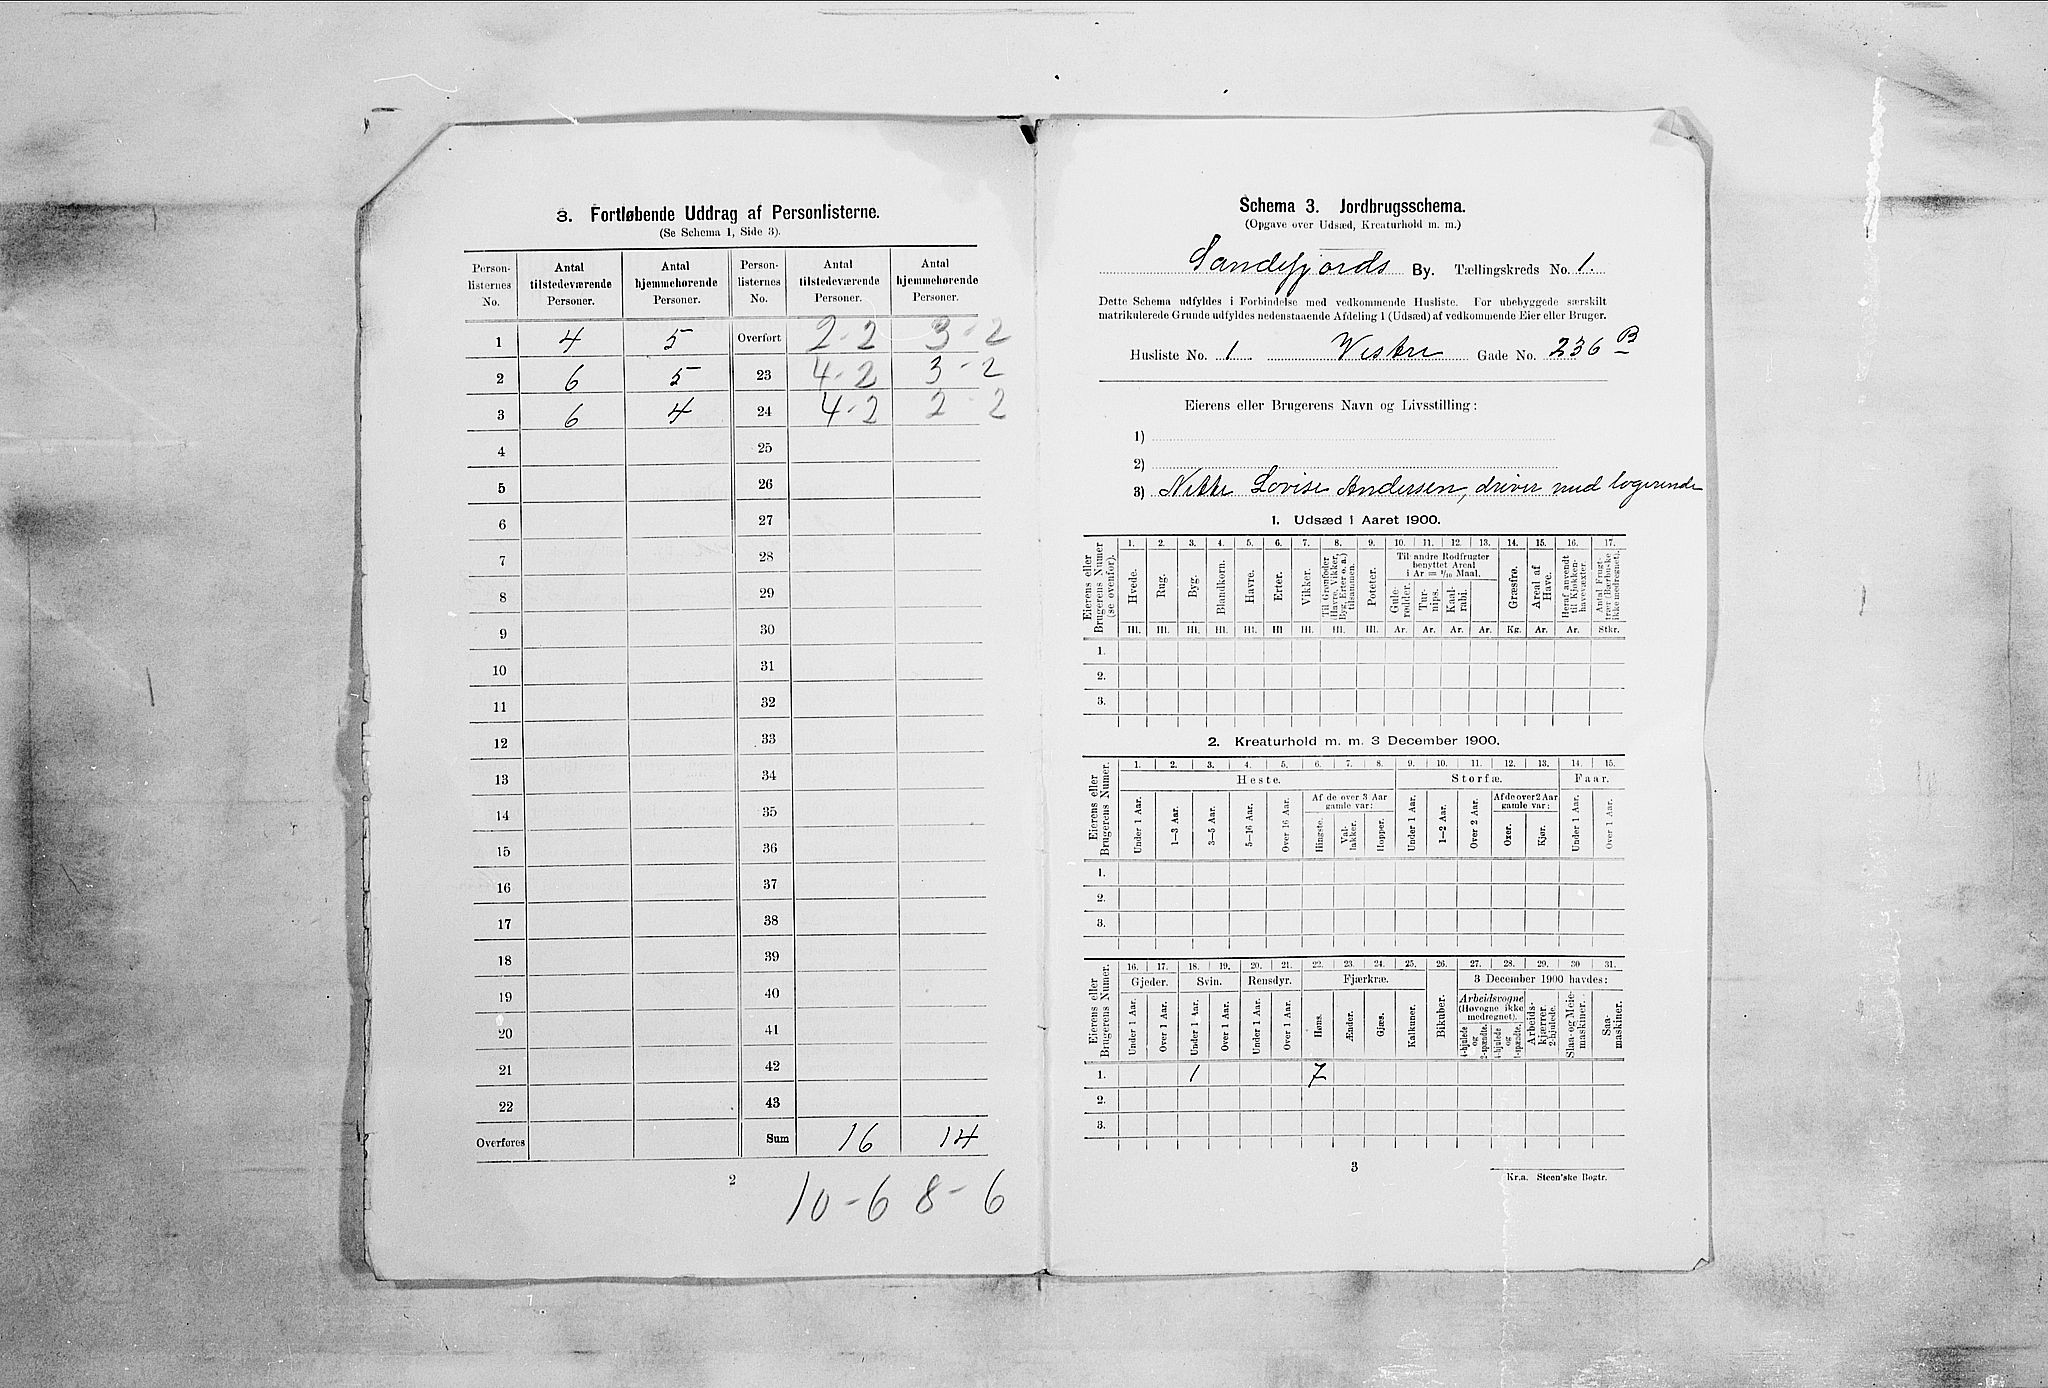 3. Fortløbende Uddrag af Personlisterne.
(Se Schema 1, Side 3).
Person-listernes No. | Antal tilstedeværende Personer. | Antal hjemmehørende Personer. | Person-listernes No. | Antal tilstedeværende Personer. | Antal hjemmehørende Personer.
1 4 5 Overført 2-2 3-2
2 6 5 23 4-2 3-2
3 6 4 24 4-2 2-2
4 25
5 26
6 27
7 28
8 29
9 30
10 31
11 32
12 33
13 34
14 35
15 36
16 37
17 38
18 39
19 40
20 41
21 42
22 43
Overføres Sum 16 14
2
10-6 8-6
Schema 3. Jordbrugsschema.
(Opgave over Udsæd, Kreaturhold m. m.)
Sandefjords By. Tællingskreds No. 1.
Dette Schema udfyldes i Forbindelse med vedkommende Husliste. For ubebyggede særskilt
matrikulerede Grunde udfyldes nedenstaaende Afdeling 1 (Udsæd) af vedkommende Eier eller Bruger.
Husliste No. 1 Vestre Gade No. 236 B
Eierens eller Brugerens Navn og Livsstilling:
1)
2)
3) Lovise Andersen, driver med logerende
1. Udsæd i Aaret 1900.
Eierens eller Brugerens Numer (se ovenfor).
1. 2. 3. 4. 5. 6. 7. 8. 9. 10. 11. 12. 13. 14. 15. 16. 17.
Hvede. Rug. Byg. Blandkorn. Havre. Erter. Vikker. Til Grønfoder (Havre, Vikker, Byg, Erter o. a.) tilsammen. Poteter. Til andre Rodfrugter benyttet Areal i Ar = 1/10 Maal. Gule-rødder. Tur-nips. Kaal-rabi. Græsfrø. Areal af Have. Heraf anvendt til Kjøkken-havevæxter. Antal Frugt-trær (Bærbuske ikke medregnet).
Hl. Hl. Hl. Hl. Hl. Hl. Hl. Hl. Hl. Ar. Ar. Ar. Ar. Kg. Ar. Ar. Stkr.
1.
2.
3.
2. Kreaturhold m. m. 3 December 1900.
Eierens eller Brugerens Numer.
1. 2. 3. 4. 5. 6. 7. 8. 9. 10. 11. 12. 13. 14. 15.
Heste. Storfæ. Faar.
Under 1 Aar. 1—3 Aar. 3—5 Aar. 5—16 Aar. Over 16 Aar. Af de over 3 Aar gamle var: Hingste. Val-lakker. Hopper. Under 1 Aar. 1—2 Aar. Over 2 Aar. Af de over 2 Aar gamle var: Oxer. Kjør. Under 1 Aar. Over 1 Aar.
1.
2.
3.
Eierens eller Brugerens Numer.
16. 17. 18. 19. 20. 21. 22. 23. 24. 25. 26. 27. 28. 29. 30 31.
Gjeder. Svin. Rensdyr. Fjærkræ. Bikuber. 3 December 1900 havdes:
Under 1 Aar. Over 1 Aar. Under 1 Aar. Over 1 Aar. Under 1 Aar. Over 1 Aar. Høns. Ænder. Gjæs. Kalkuner. Arbeidsvogne (Høvogne ikke medregnet). 4-hjulede og 2-spændte. 4-hjulede og 1-spændte. Arbeids-kjærrer 2-hjulede. Slaa- og Meie-maskiner. Saa-maskiner.
1. 1 7
2.
3.
3
Kr.a. Steen'ske Bogtr.